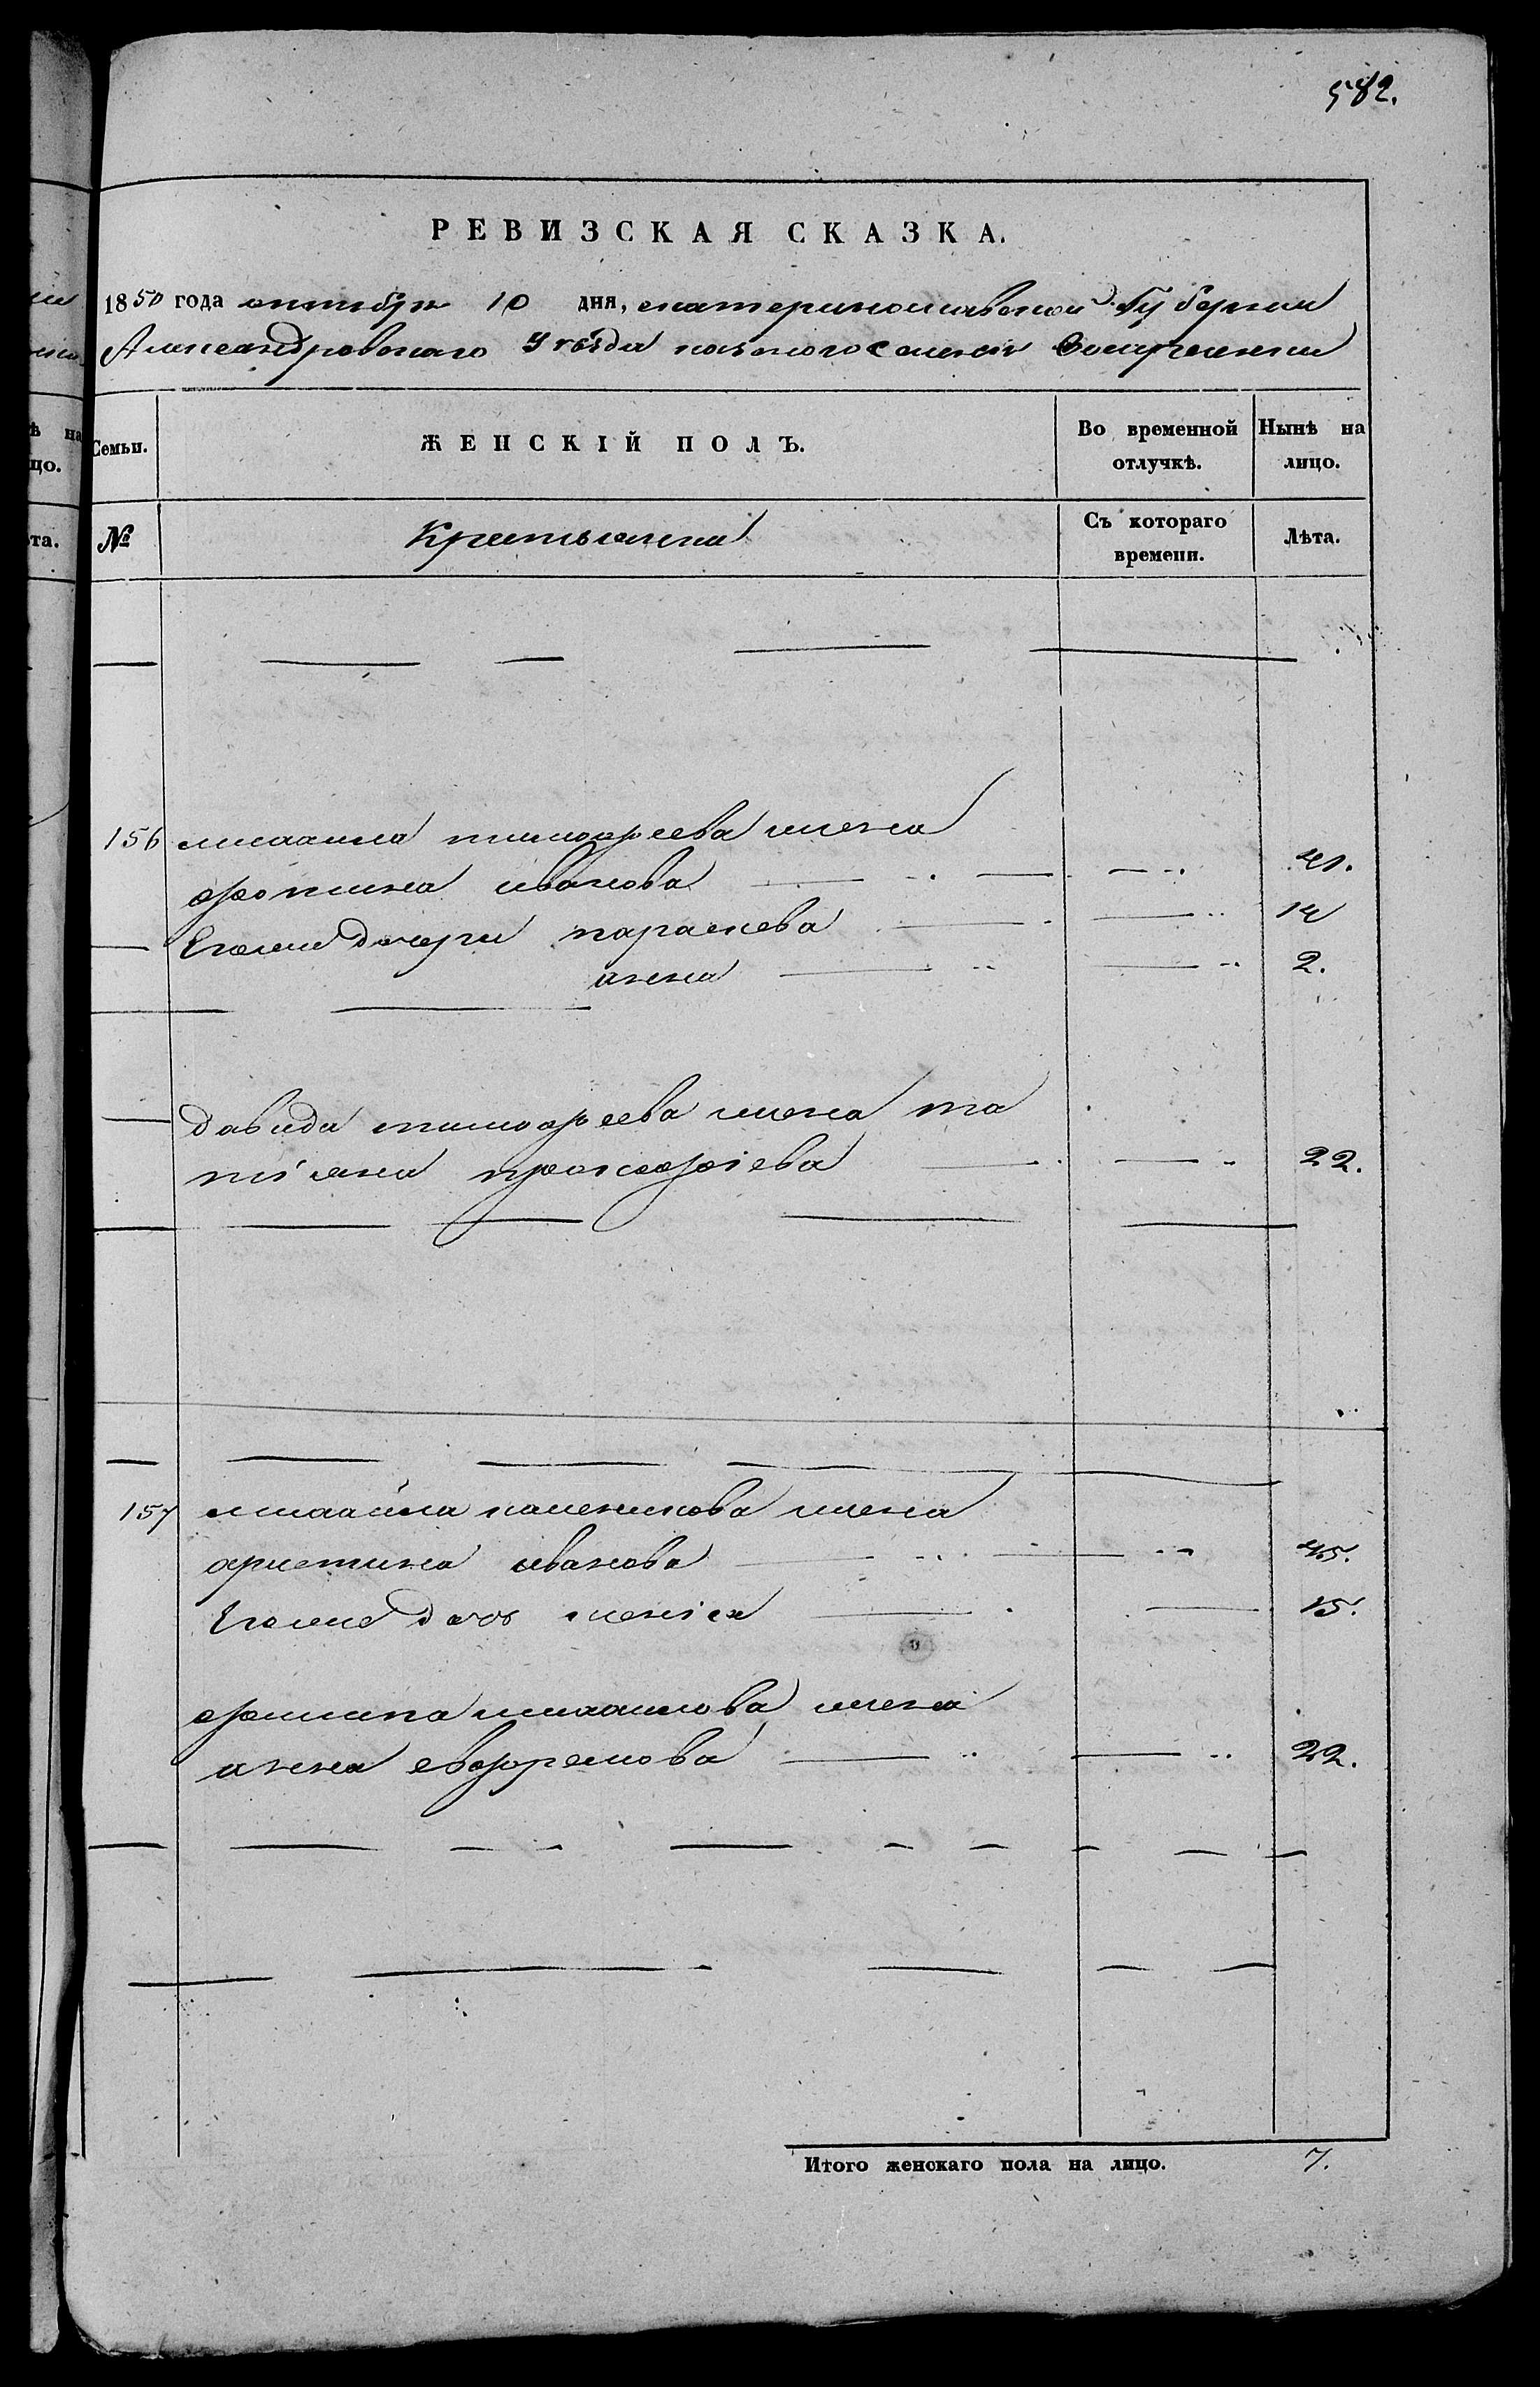 582.
РЕВИЗСКАЯ СКАЗКА.
1850 года октября 10 дня, екатеринославской Губернии
Александровскаго Уѣзда казеннаго селенія Воскресенки
Семьи. ЖЕНСКІЙ ПОЛЪ. Во временной отлучкѣ. Нынѣ на лицо.
№ Крестьянка Съ котораго времени. Лѣта.
156 михаила тимофеева жена
фотина иванова 41.
Егоже дочери параскева 14
анна 2.
давида тимофеева жена та
тіяна прокофіева 22.
157 михайла жена
христина иванова 45.
Егоже дочь ксенія 15.
филипа михаилова жена
анна евфремова 22.
Итого женскаго пола на лицо. 7.